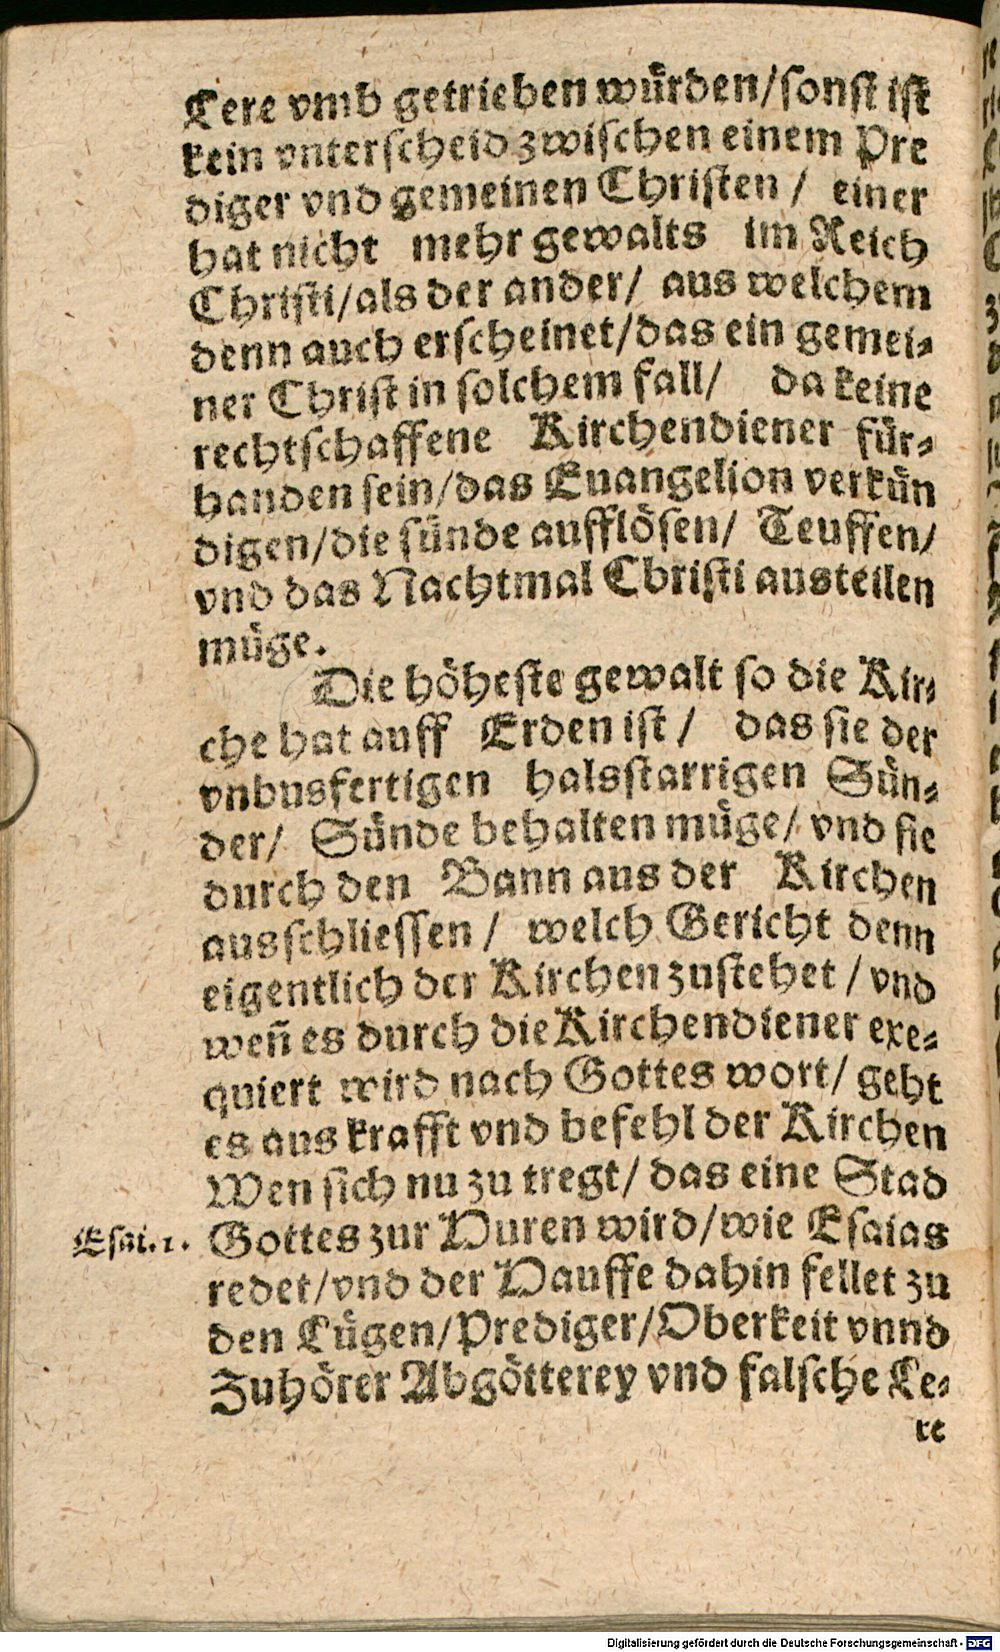 Lere vmb getrieben würden/sonst ist
kein vnterscheid zwischen einem Pre
diger vnd gemeinen Christen / einer
hat nicht mehr gewalts im Reich
Christi/als der ander/ aus welchem
denn auch erscheinet/das ein gemei-
ner Christ in solchem fall/ da keine
rechtschaffene Kirchendiener für-
handen sein/das Euangelion verkün
digen/die sünde aufflösen/ Teuffen/
vnd das Nachtmal Christi austeilen
müge.
Die höheste gewalt so die Kir-
che hat auff Erden ist / das sie der
vnbusfertigen halsstarrigen Sün-
der/ Sünde behalten müge/ vnd sie
durch den Bann aus der Kirchen
ausschliessen / welch Gericht denn
eigentlich der Kirchen zustehet / vnd
weñ es durch die Kirchendiener exe-
quiert wird nach Gottes wort/ geht
es aus krafft vnd befehl der Kirchen
Wen sich nu zu tregt/ das eine Stad
Esai.1. Gottes zur Huren wird/wie Esaias
redet/vnd der Hauffe dahin fellet zu
den Lügen/Prediger/Oberkeit vnnd
Zuhörer Abgötterey vnd falsche Le-
re
Digitalisierung gefördert durch die Deutsche Forschungsgemeinschaft - DFG